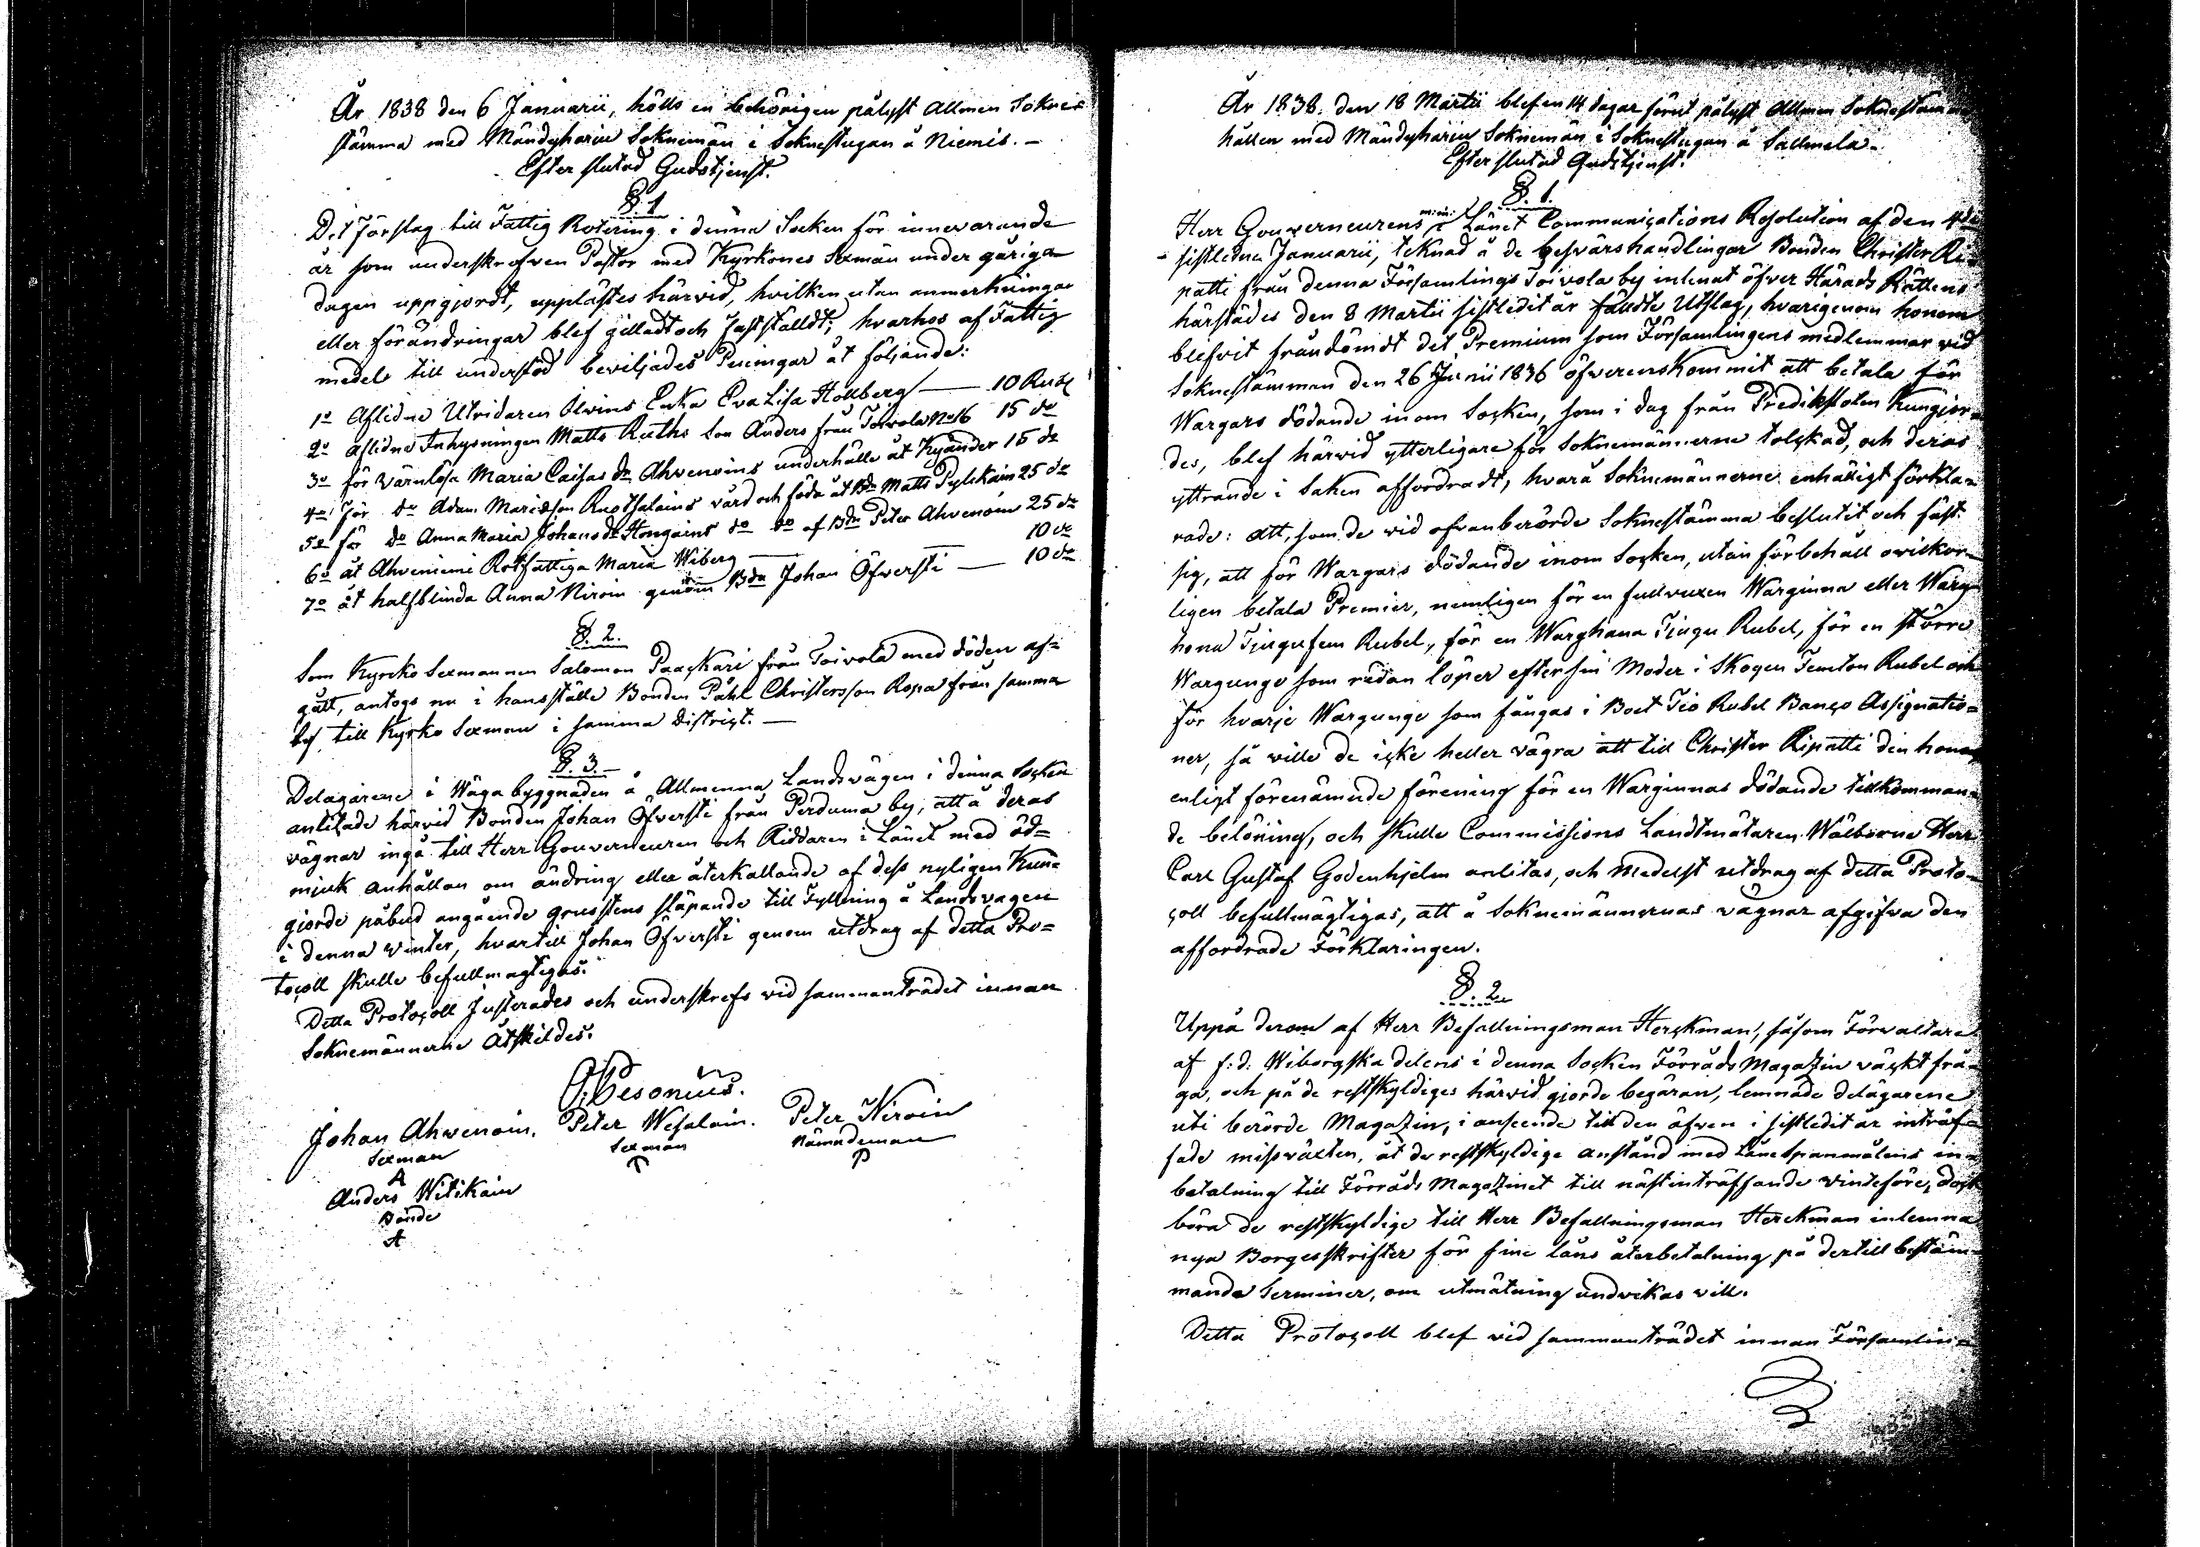 År 1838 den 6 Januarii, hölls en behörigen pålyst Allmen Sokne
stämma med Mändyharju Sokneman i Soknestugan å Niemis. -
Efter slutad Gudstjenst.
§. 1
Det Förslag till Fattig Rotering i denna Socken för innevarande
år som underskrefven Pastor med Kyrkones Sexmän under gåriga
dagen uppgjordt, upplästes härvid, hvilken utan anmerkningar
eller förändringar blef gilladt och fastställdt; hvarhos af Fattig
medel till understöd beviljades Penningar åt följande:
1o Aflidne Utridaren Olvins Enka Eva Lisa Hollberg — 10 Rub
2o Aflidne Inhysningen Matts Ruths Son Anders från Toivola No 16 15 do
3o för värnlösa Maria Caisas dr Ahvenoins underhålle åt Kyander 15 do
4o För do Adam Maridson Ruotsalains vård och föda åt Bdn Matts Pylckäin 25 do
5o för do Anna Maria Johans dr Hongains do do af Bdn Peter Ahvenoin 25 do
6o åt Ahveniemi Rotfattiga Maria Wiberg — 10 do
7o åt halfblinda Anna Niroin genom Bdn Johan Öfversti — 10 do
§. 2.
Som Kyrko Sexmannen Salomon Paaskari från Toivola med döden af-
gått, antogs nu i hans ställe Bonden Påhl Christersson Ropa från samma
by till Kyrko Sexman i samma District. —
§. 3. —
Delägarene i Wäga byggnaden å Allmenna Landsvägen i denna Socken
anlitade härvid Bonden Johan Öfversti från Perduma by, att å deras
vägnar ingå till Herr Gouverneuren och Riddaren i Länet med öd-
mjuk anhållan om ändring eller återkallande af dess nyligen Kun-
gjorde påbud angående grusstens släpande till Fyllning å Landsvägen
i denna winter, hvartill Johan Öfversti genom utdrag af detta Pro-
tocoll skulle befullmägtigas.
Detta Protocoll Justerades och underskrefs vid sammanträdet innan
Soknemännerne Åtskildes.
Pesonius.
Johan Ahvenoin. Peter Wesalain. Peter Niroin
Sexman Sexman Nämndeman
Anders Witikain
Bonde
År 1838. den 18 Martii blef en 14 dagar förut pålyst Allmen Soknestäm
hållen med Mändyharju Soknemän i Soknestugan å Sallmela.
Efter slutad Gudstjenst.
§. 1.
Herr Gouverneurens i Länet Communications Resolution af den 4de
sistledne Januarii, teknad å de besvärshandlingar Bonden Christer Ri-
patti från denna Församlings Toivola by inlemnat öfver Härads Rättens
härstädes den 8 Martii sistledit år fälldte Utslag, hvarigenom honom
blefvit fråndömdt det Premium som Församlingens medlemmar vid
Soknestämman den 26 Junii 1836 öfverenskommit att betala för
Wargars dödande inom Socken, som i dag från Predikstolen Kungjor-
des, blef härvid ytterligare för Soknemännerne tolckad, och deras
yttrande i Saken affordradt, hvarå Soknemännerne enhälligt förkla-
rade: att, som de vid ofvanberörde Soknestämma beslutit och fäst
sig, att för Wargars dödande inom Socken, utan förbehåll ovilkor-
ligen betala Premier, nemligen för en fullvuxen Warginna eller Warg
hona Tjugufem Rubel, för en Warghana Tjugu Rubel, för en större
Wargunge som redan löper efter sin Moder i Skogen Femton Rubel och
för hvarje Wargunge som fångas i Boet Tio Rubel Banco Assignatio-
ner, så ville de icke heller vägra att till Christer Ripatti den hono
enligt förenämnde förening för en Warginnas dödande tillkomman-
de belöning, och skulle Commissions Landtmätaren Wälborne Herr
Carl Gustaf Godenhjelm anlitas, och medelst utdrag af detta Proto-
coll befullmägtigas, att å Soknemännernas vägnar afgifva den
affordrade Förklaringen.
§. 2
Uppå derom af Herr Befallningsman Herckman, såsom Förvaltare
af f: d: Wiborgska delens i denna Socken Förråds Magazin väckt frå-
ga, och på de restskyldiges härvid gjorde begäran, lemnade delägarene
uti berörde Magazin, i anseende till den äfven i sistledit år inträf-
fade missväxten, åt de restskyldige anstånd med Lånespanmålens in-
betalning till Förråds Magazinet till nästinträffande vinterföre, dock
böra de restskyldige till Herr Befallningsman Herckman inlemna
nya Borgesskrifter för sine låns återbetalning på dertill bestäm-
mande Terminer, om utmätning undvikas vill.
Detta Protocoll blef vid sammanträdet innan Församlin-